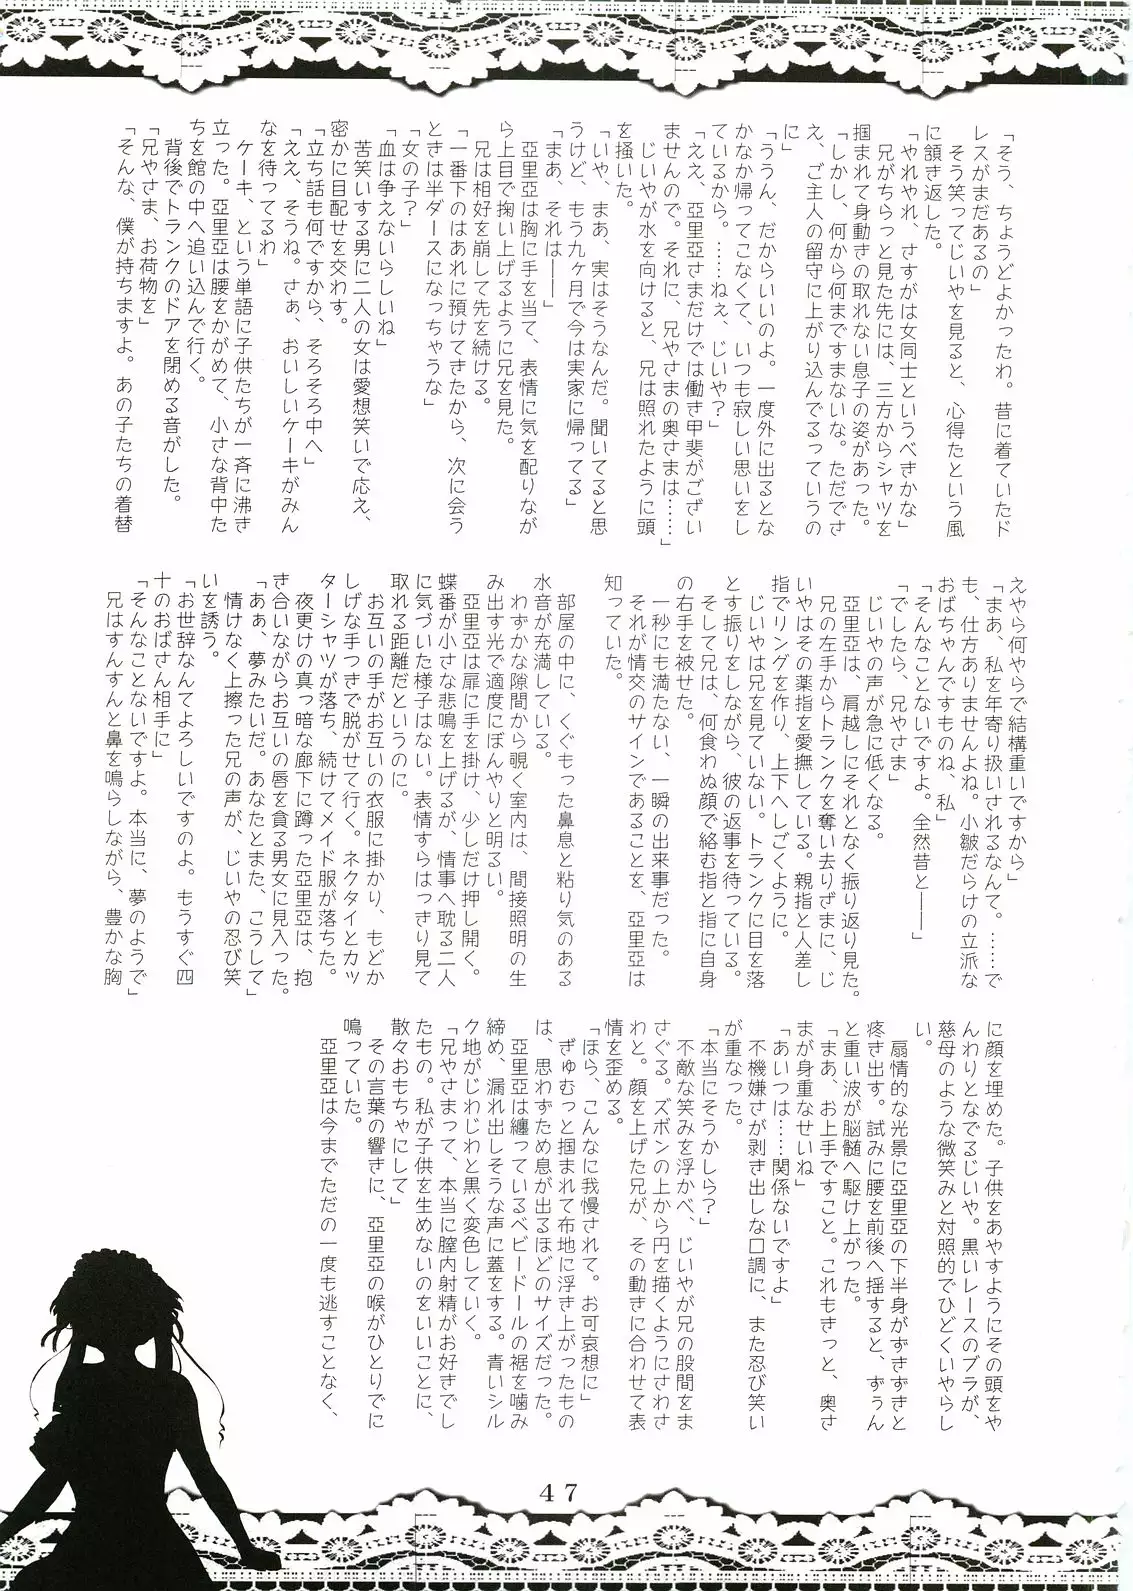 「そう、ちょうどよかったわ。昔に着ていたド
レスがまだあるの」
　そう笑ってじいやを見ると、心得たという風
に頷き返した。
「やれやれ、さすがは女同士というべきかな」
　兄がちらっと見た先には、三方からシャツを
掴まれて身動きの取れない息子の姿があった。
「しかし、何から何まですまないな。ただでさ
え、ご主人の留守に上がり込んでるっていうの
に」
「ううん、だからいいのよ。一度外に出るとな
かなか帰ってこなくて、いつも寂しい思いをし
ているから。……ねえ、じいや？」
「ええ、亞里亞さまだけでは働き甲斐がござい
ませんので。それに、兄やさまの奥さまは……」
　じいやが水を向けると、兄は照れたように頭
を掻いた。
「いや、まあ、実はそうなんだ。聞いてると思
うけど、もう九ヶ月で今は実家に帰ってる」
「まあ、それは――」
　亞里亞は胸に手を当て、表情に気を配りなが
ら上目で掬い上げるように兄を見た。
　兄は相好を崩して先を続ける。
「一番下のはあれに預けてきたから、次に会う
ときは半ダースになっちゃうな」
「女の子？」
「血は争えないらしいね」
　苦笑いする男に二人の女は愛想笑いで応え、
密かに目配せを交わす。
「立ち話も何ですから、そろそろ中へ」
「ええ、そうね。さぁ、おいしいケーキがみん
なを待ってるわ」
　ケーキ、という単語に子供たちが一斉に沸き
立った。亞里亞は腰をかがめて、小さな背中た
ちを館の中へ追い込んで行く。
　背後でトランクのドアを閉める音がした。
「兄やさま、お荷物を」
「そんな、僕が持ちますよ。あの子たちの着替
えやら何やらで結構重いですから」
「まあ、私を年寄り扱いされるなんて。……で
も、仕方ありませんよね。小皺だらけの立派な
おばちゃんですものね、私」
「そんなことないですよ。全然昔と――」
「でしたら、兄やさま」
　じいやの声が急に低くなる。
　亞里亞は、肩越しにそれとなく振り返り見た。
　兄の左手からトランクを奪い去りざまに、じ
いやはその薬指を愛撫している。親指と人差し
指でリングを作り、上下へしごくように。
　じいやは兄を見ていない。トランクに目を落
とす振りをしながら、彼の返事を待っている。
　そして兄は、何食わぬ顔で絡む指と指に自身
の右手を被せた。
　一秒にも満たない、一瞬の出来事だった。
　それが情交のサインであることを、亞里亞は
知っていた。
　部屋の中に、くぐもった鼻息と粘り気のある
水音が充満している。
　わずかな隙間から覗く室内は、間接照明の生
み出す光で適度にぼんやりと明るい。
　亞里亞は扉に手を掛け、少しだけ押し開く。
蝶番が小さな悲鳴を上げるが、情事へ耽る二人
に気づいた様子はない。表情すらはっきり見て
取れる距離だというのに。
　お互いの手がお互いの衣服に掛かり、もどか
しげな手つきで脱がせて行く。ネクタイとカッ
ターシャツが落ち、続けてメイド服が落ちた。
　夜更けの真っ暗な廊下に蹲った亞里亞は、抱
き合いながらお互いの唇を貪る男女に見入った。
「あぁ、夢みたいだ。あなたとまた、こうして」
　情けなく上擦った兄の声が、じいやの忍び笑
いを誘う。
「お世辞なんてよろしいですのよ。もうすぐ四
十のおばさん相手に」
「そんなことないですよ。本当に、夢のようで」
　兄はすんすんと鼻を鳴らしながら、豊かな胸
に顔を埋めた。子供をあやすようにその頭をや
んわりとなでるじいや。黒いレースのブラが、
慈母のような微笑みと対照的でひどくいやらし
い。
　扇情的な光景に亞里亞の下半身がずきずきと
疼き出す。試みに腰を前後へ揺すると、ずぅん
と重い波が脳髄へ駆け上がった。
「まあ、お上手ですこと。これもきっと、奥さ
まが身重なせいね」
「あいつは……関係ないですよ」
　不機嫌さが剥き出しな口調に、また忍び笑い
が重なった。
「本当にそうかしら？」
　不敵な笑みを浮かべ、じいやが兄の股間をま
さぐる。ズボンの上から円を描くようにさわさ
わと。顔を上げた兄が、その動きに合わせて表
情を歪める。
「ほら、こんなに我慢されて。お可哀想に」
　ぎゅむっと掴まれて布地に浮き上がったもの
は、思わずため息が出るほどのサイズだった。
　亞里亞は纏っているベビードールの裾を噛み
締め、漏れ出しそうな声に蓋をする。青いシル
ク地がじわじわと黒く変色していく。
「兄やさまって、本当に膣内射精がお好きでし
たもの。私が子供を生めないのをいいことに、
散々おもちゃにして」
　その言葉の響きに、亞里亞の喉がひとりでに
鳴っていた。
　亞里亞は今までただの一度も逃すことなく、
47